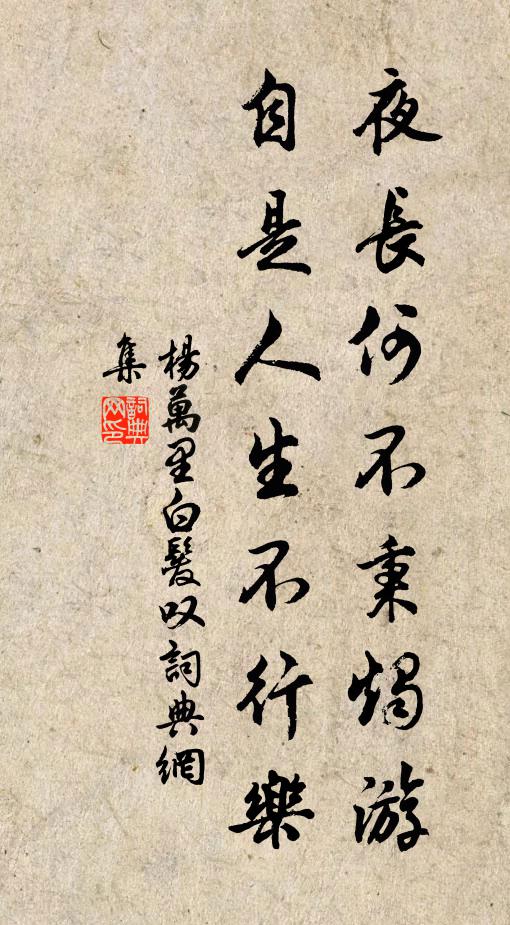 夜長何不秉燭游
自是人生不行樂
楊萬里白髮叹詞典網
集
詞典网印